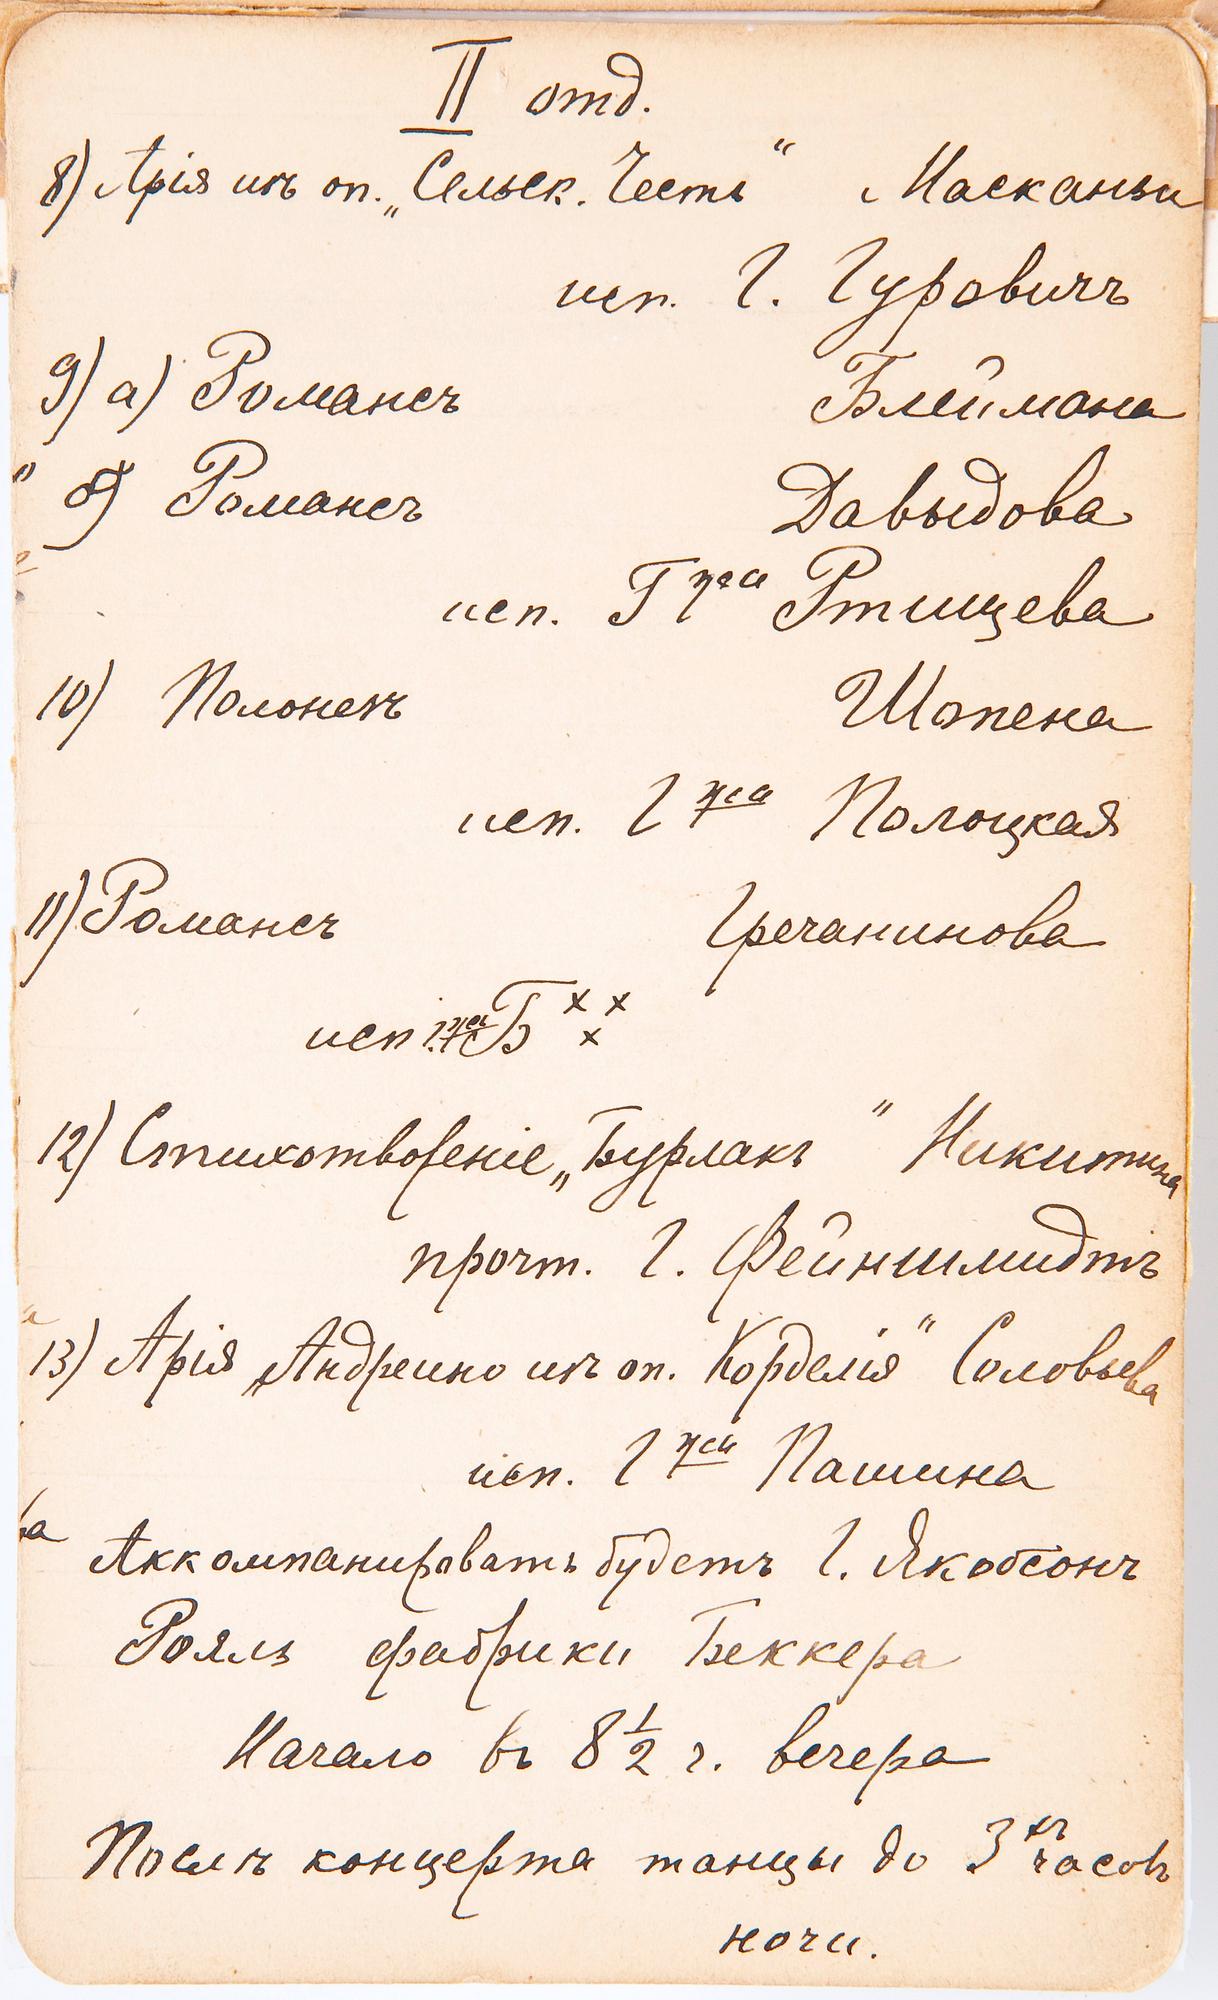 II отд.
8) Арія изъ оп. „Сельск. Честь" Масканьи
исп. Г. Гуровичъ
9) а) Романсъ Блеймана
" б) Романсъ Давыдова
исп. Гжа Ртищева
10) Полонезъ Шопена
исп. Гжа Полоцкая
11) Романсъ Гречанинова
исп. Гжа Б xxx
12) Стихотвореніе „Бурлакъ" Никитина
прочт. Г. Фейншмидтъ
13) Арія „Андреино изъ оп. Корделія" Соловьева
исп. Гжа Пашина
Аккомпанировать будетъ Г. Якобсонъ
Рояль фабрики Беккера
Начало въ 8 1/2 ч. вечера
Послѣ концерта танцы до 3хъ часовъ
ночи.